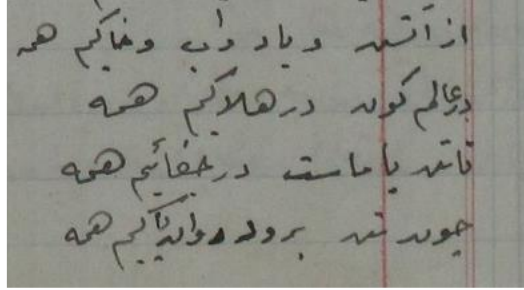 از آتش و باد و آب و خاکیم همه
در عالم کون در هلاکیم همه
تا تن با ماست در جفائیم همه
چون تن برود روان پاکیم همه